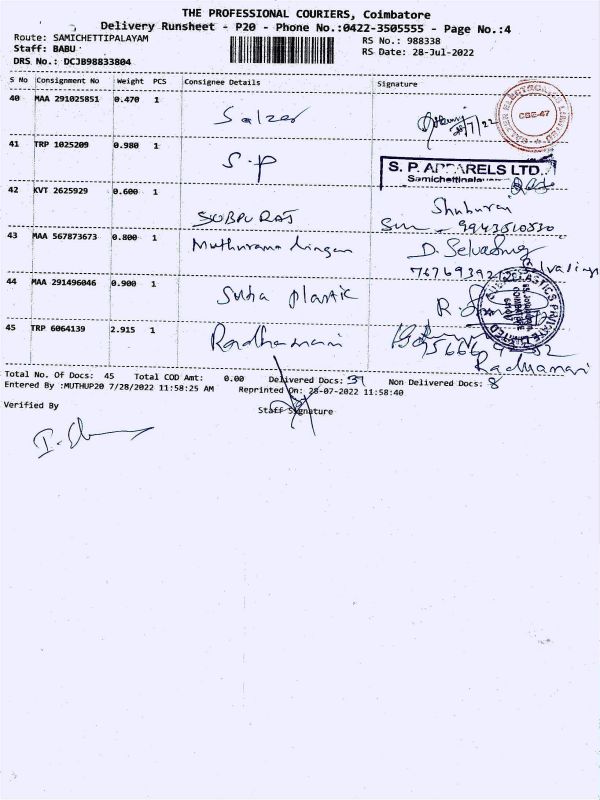 THE PROFESSIONAL COURIERS, Coimbatore
Delivery Runsheet - P20 - Phone No.:0422-3505555 - Page No.:4
Route: SAMICHETTIPALAYAM RS No.: 988338
Staff: BABU RS Date: 28-Jul-2022
DRS No.: DCJB98833804
S No Consignment No Weight PCS Consignee Details Signature
40 MAA 291025851 0.470 1 Salzer 28/7/22
CBE-47
41 TRP 1025209 0.980 1 S.P S. P. APPARELS LTD.
Samichettipalayam
42 KVT 2625929 0.600 1 SUBPURAJ
43 MAA 567873673 0.800 1 Muthurama lingam D. Selvaling
44 MAA 291496046 0.900 1 Suba plastic R.
45 TRP 6064139 2.915 1 Radhamani
Radhamani
Total No. Of Docs: 45 Total COD Amt: 0.00 Delivered Docs: 37 Non Delivered Docs: 8
Entered By :MUTHUP20 7/28/2022 11:58:25 AM Reprinted On: 28-07-2022 11:58:40
Verified By Staff Signature